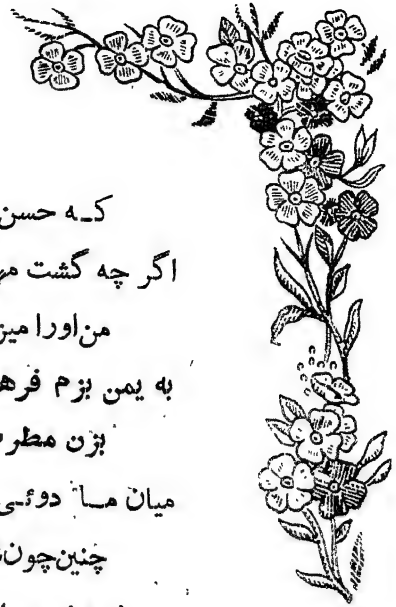 کـه حسن
اگر چه گشت
من اورا
به یمن بزم
بزن
میان مـا دوئـی
چنین چون